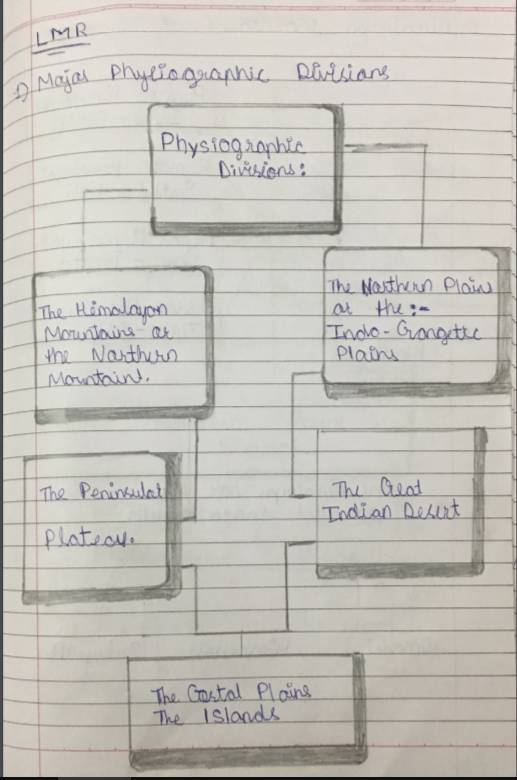 LMR
1) Majar Phyliographic Divisians
Physiographic
Divisions:
The Himalayan
Mauntains ar
the Narthern
Mauntains.
The Narthern Plain
ar the :-
Indo-Gangetic
Plains
The Peninsular
Plateau.
The Great
Indian Desert
The Costal Plains
The Islands